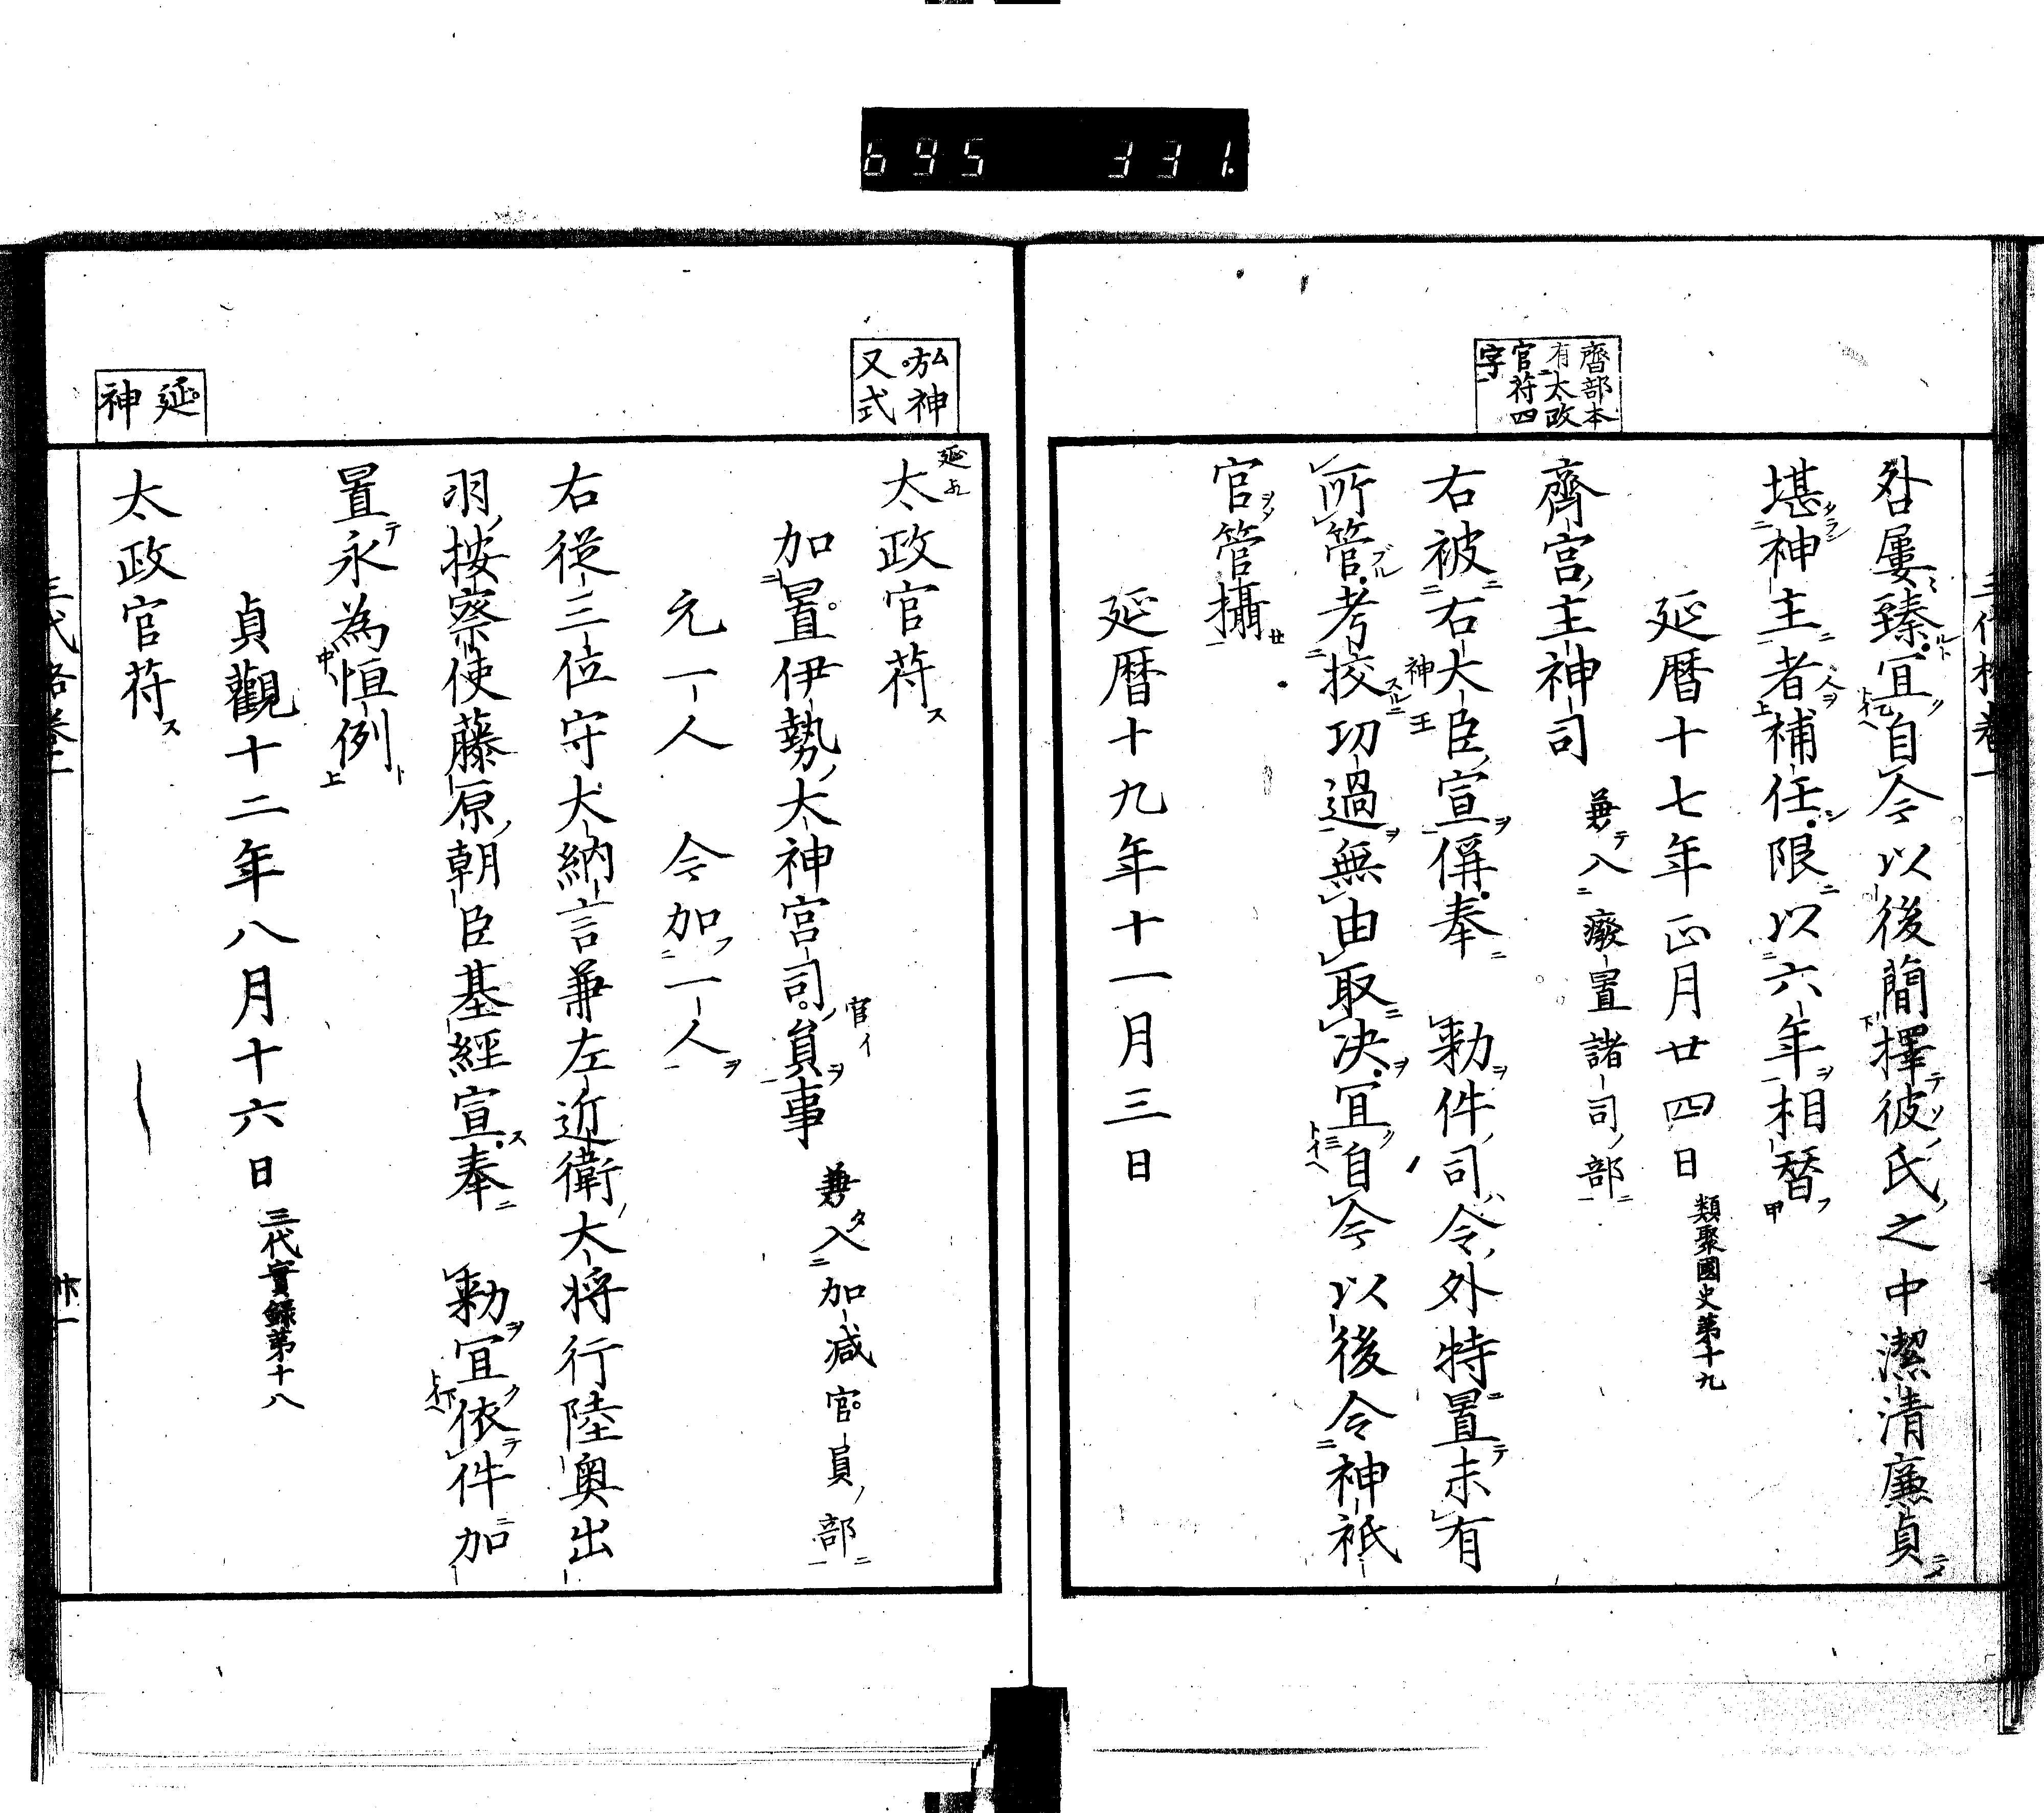 695 331.
齊部本
有太政
官符四
字
咎屢臻宜自今以後簡擇彼氏之中潔清廉貞
堪神主者補任限以六年相替
延暦十七年正月廿四日 類聚國史第十九
齊宮主神司 兼入廢置諸司部
右被右大臣宣偁奉 勅件司令外特置未有
神王
所管考挍功過無由取决宜自今以後令神祇
官管攝
延暦十九年十一月三日
神
又式
太政官苻
加置伊勢大神宮司貟事 兼入加减官員部
官イ
元一人 今加一人
右從三位守大納言兼左近衛大将行陸奥出
羽按察使藤原朝臣基經宣奉 勅宜依件加
置永為恒例
貞觀十二年八月十六日 三代實録第十八
延
神
太政官苻